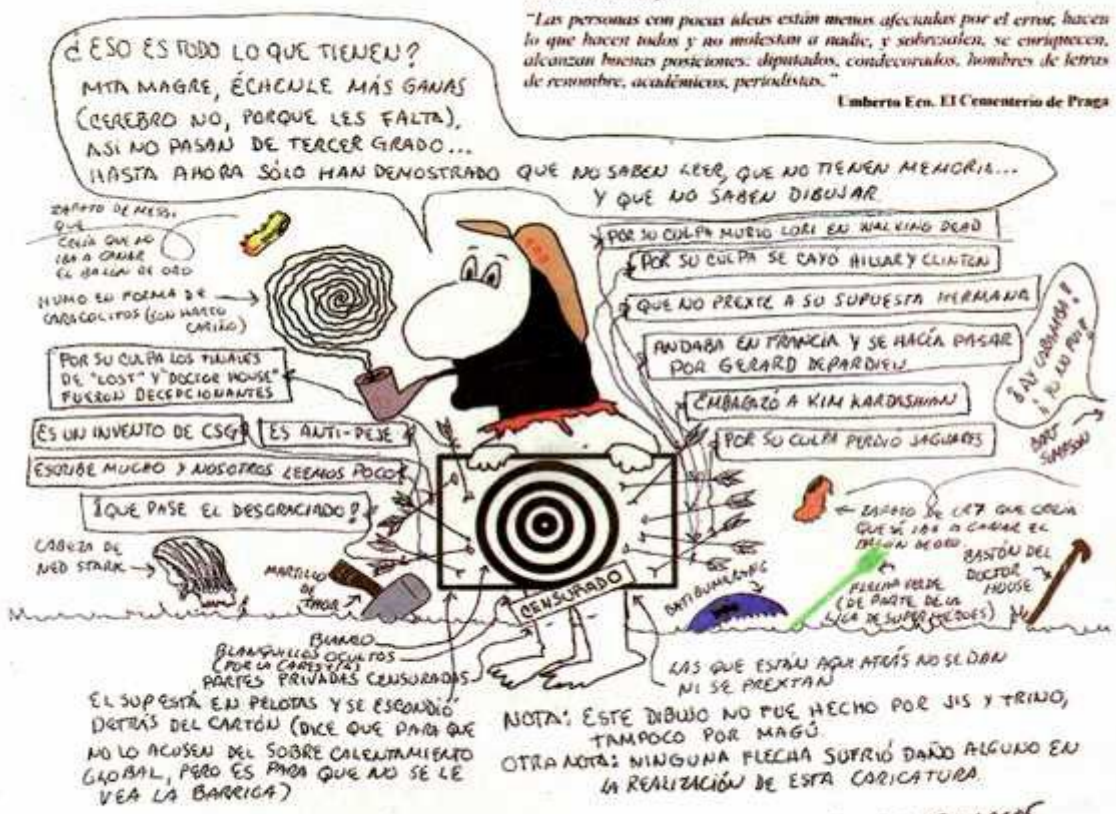 "Las personas con pocas ideas están menos afectadas por el error, hacen
lo que hacen todos y no molestan a nadie, y sobresalen, se enriquecen,
alcanzan buenas posiciones: diputados, condecorados, hombres de letras
de renombre, académicos, periodistas."
Umberto Eco. El Cementerio de Praga
¿ESO ES TODO LO QUE TIENEN?
MTA MAGRE, ÉCHENLE MÁS GANAS
(CEREBRO NO, PORQUE LES FALTA),
ASI NO PASAN DE TERCER GRADO...
HASTA AHORA SÓLO HAN DEMOSTRADO QUE NO SABEN LEER, QUE NO TIENEN MEMORIA...
Y QUE NO SABEN DIBUJAR
ZAPATO DE MESSI,
QUE
CREÍA QUE NO
IBA A GANAR
EL BALON DE ORO
HUMO EN FORMA DE
CARACOLITOS (CON HARTO
CARIÑO)
POR SU CULPA LOS FINALES
DE "LOST" Y "DOCTOR HOUSE"
FUERON DECEPCIONANTES
ES UN INVENTO DE CSG
ES ANTI-PEJE
ESCRIBE MUCHO Y NOSOTROS LEEMOS POCO
¡QUE PASE EL DESGRACIADO!
CABEZA DE
NED STARK
MARTILLO
DE
THOR
POR SU CULPA MURIO LORI EN WALKING DEAD
POR SU CULPA SE CAYÓ HILLARY CLINTON
QUE NO PREXTE A SU SUPUESTA HERMANA
ANDABA EN FRANCIA Y SE HACÍA PASAR
POR GERARD DEPARDIEU
EMBARAZÓ A KIM KARDASHIAN
POR SU CULPA PERDIÓ JAGUARES
¡AY CARAMBA!
¡YO NO FUI!
BART
SIMPSON
ZAPATO DE CR7 QUE CREÍA
QUE SÍ IBA A GANAR EL
BALON DE ORO
BASTÓN DEL
DOCTOR
HOUSE
FLECHA VERDE
(DE PARTE DE LA
LIGA DE SUPER HEROES)
BATIBUMERANG
CENSURADO
BLANCO
BLANQUILLOS OCULTOS
(POR LA CARESTÍA)
PARTES PRIVADAS CENSURADAS
LAS QUE ESTÁN AQUI ATRÁS NO SE DAN
NI SE PREXTAN
EL SUP ESTÁ EN PELOTAS Y SE ESCONDIÓ
DETRÁS DEL CARTÓN (DICE QUE PARA QUE
NO LO ACUSEN DEL SOBRE CALENTAMIENTO
GLOBAL, PERO ES PARA QUE NO SE LE
VEA LA BARRIGA)
NOTA: ESTE DIBUJO NO FUE HECHO POR JIS Y TRINO,
TAMPOCO POR MAGÚ.
OTRA NOTA: NINGUNA FLECHA SUFRIÓ DAÑO ALGUNO EN
LA REALIZACIÓN DE ESTA CARICATURA.